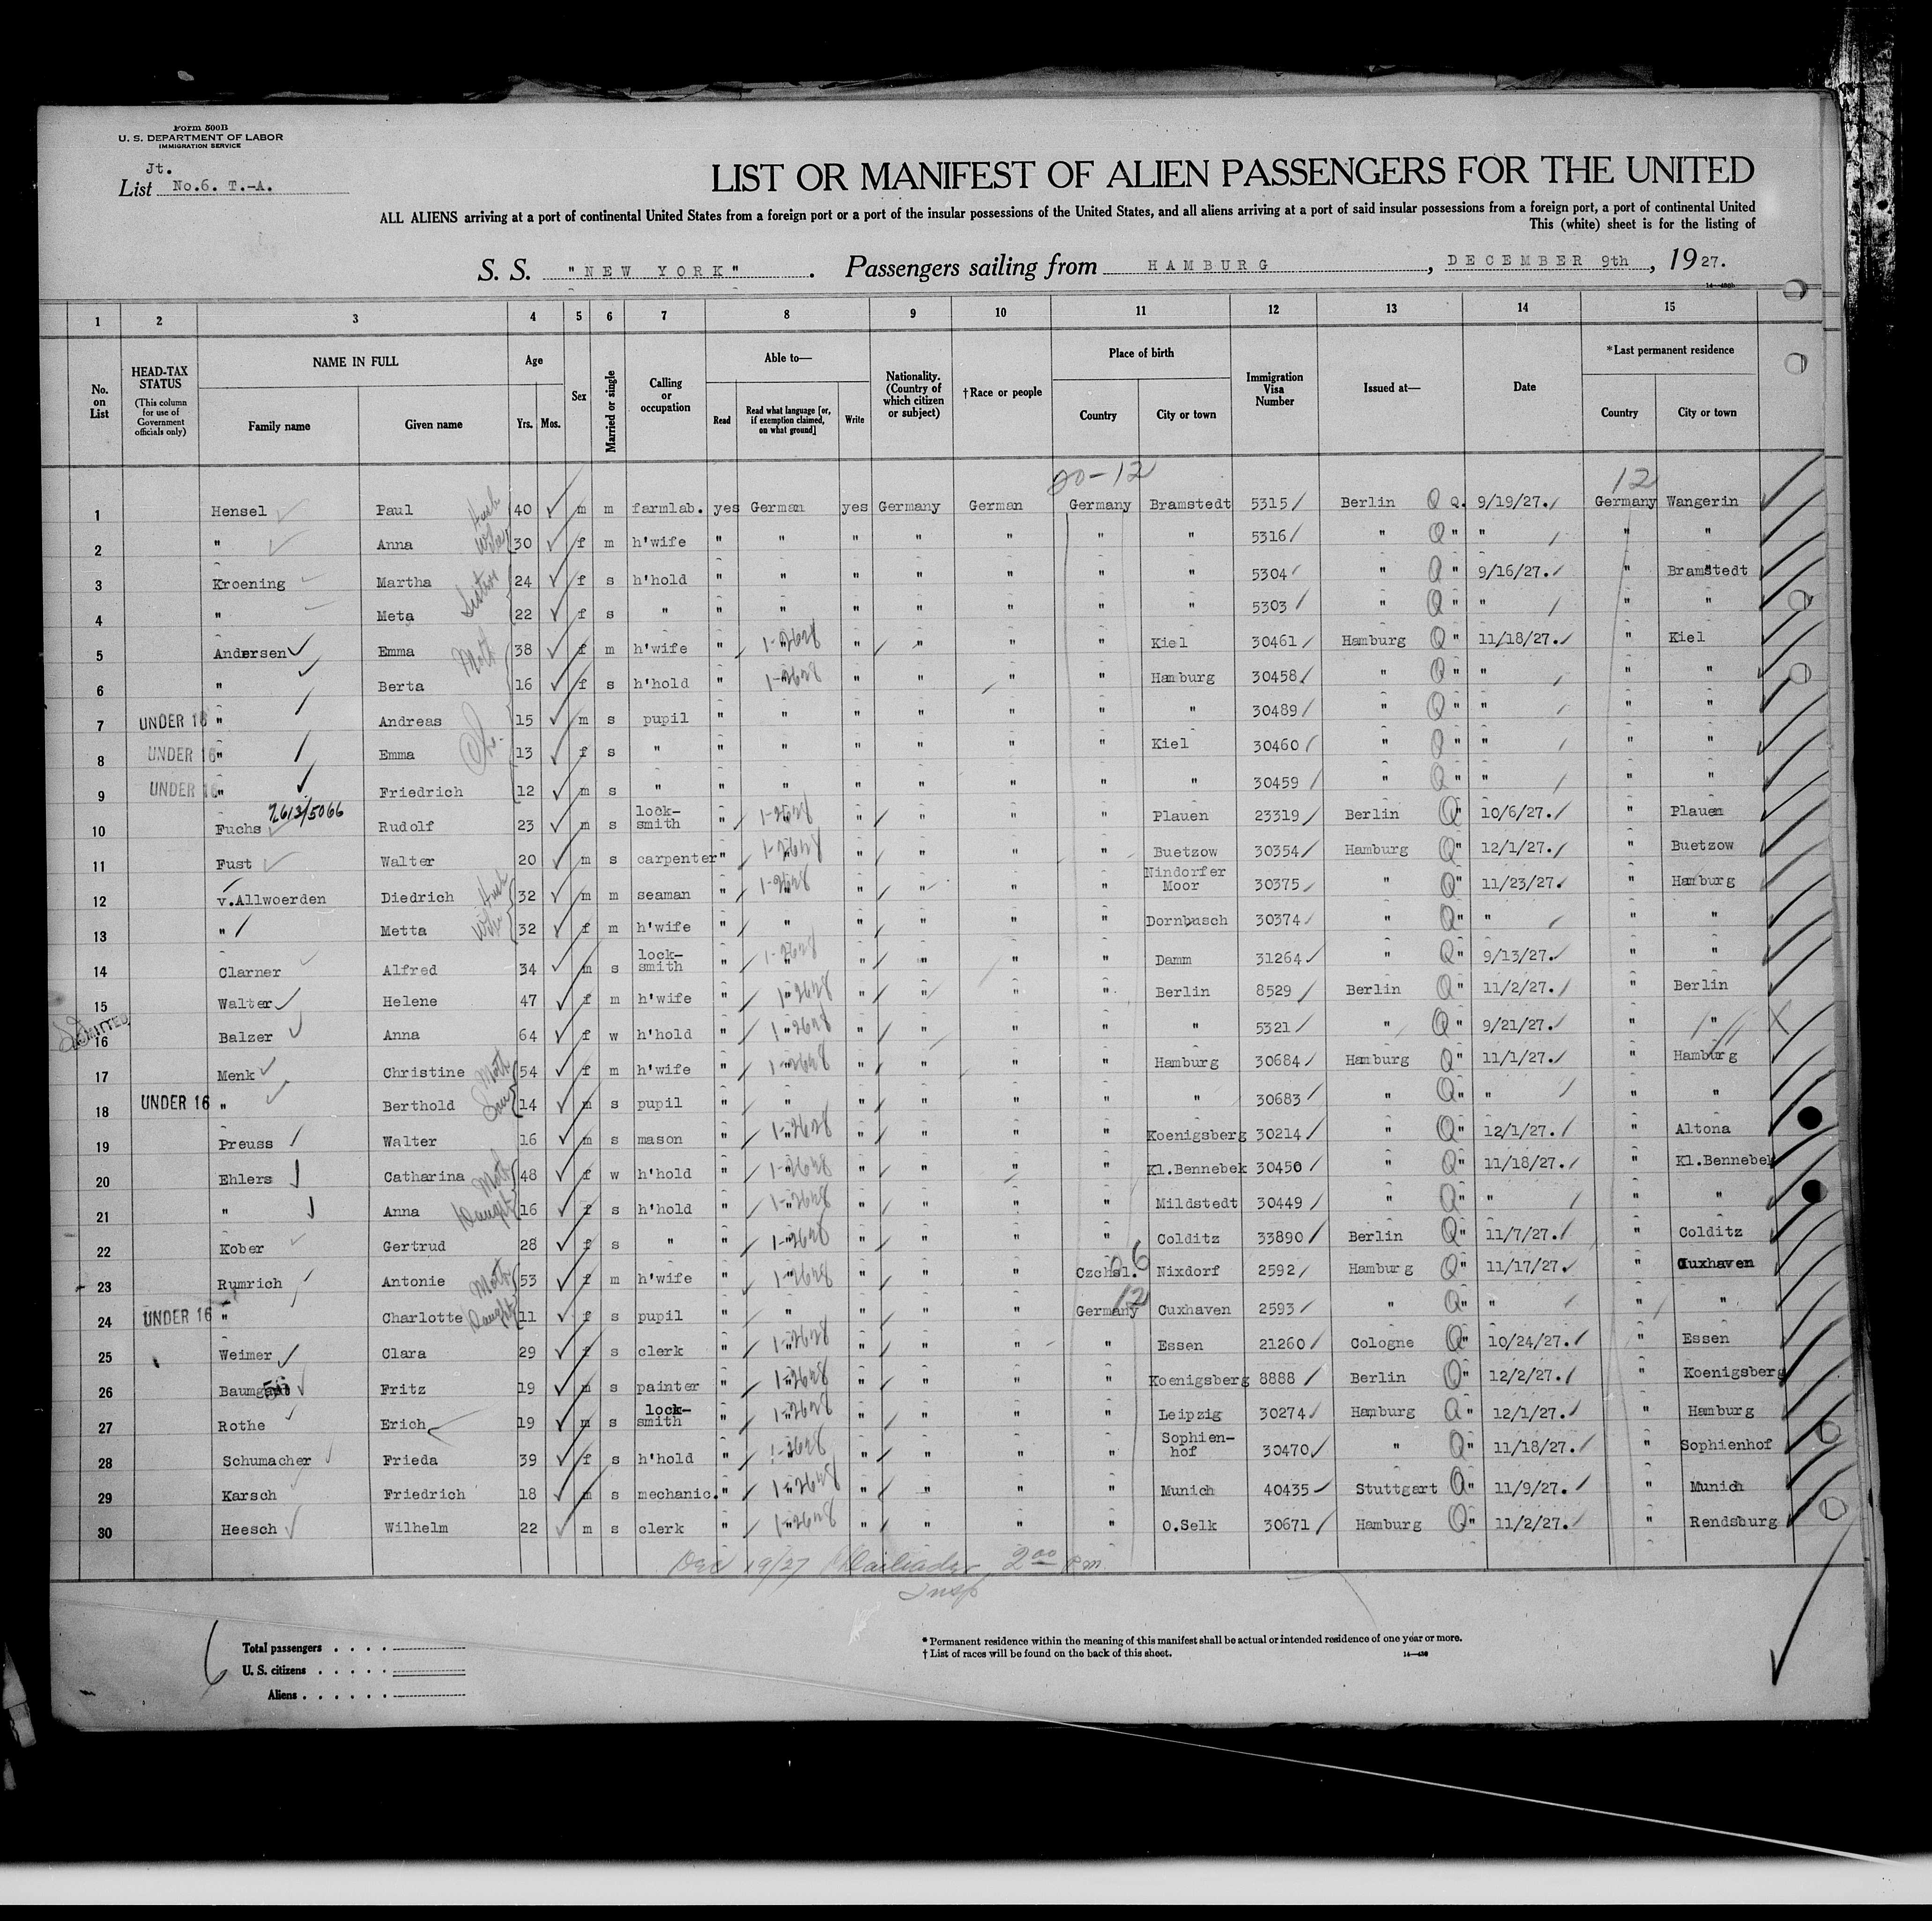 Form 500B
U. S. DEPARTMENT OF LABOR
IMMIGRATION SERVICE
Jt.
List No.6. T.-A.
LIST OR MANIFEST OF ALIEN PASSENGERS FOR THE UNITED
ALL ALIENS arriving at a port of continental United States from a foreign port or a port of the insular possessions of the United States, and all aliens arriving at a port of said insular possessions from a foreign port, a port of continental United
This (white) sheet is for the listing of
S. S. "NEW YORK". Passengers sailing from HAMBURG, DECEMBER 9th, 1927.
1 2 3 4 5 6 7 8 9 10 11 12 13 14 15
No. on List
HEAD-TAX STATUS (This column for use of Government officials only)
NAME IN FULL Family name Given name
Age Yrs. Mos.
Sex
Married or single
Calling or occupation
Able to— Read Read what language [or, if exemption claimed, on what ground] Write
Nationality. (Country of which citizen or subject)
†Race or people
Place of birth Country City or town
Immigration Visa Number
Issued at—
Date
*Last permanent residence Country City or town
20-12 12
1 Hensel Paul Husb 40 m m farmlab. yes German yes Germany German Germany Bramstedt 5315 Berlin Q Q. 9/19/27. Germany Wangerin
2 " Anna Wife 30 f m h'wife " " " " " " " 5316 " Q " " " "
3 Kroening Martha Sisters 24 f s h'hold " " " " " " " 5304 " Q " 9/16/27. " Bramstedt
4 " Meta 22 f s " " " " " " " " 5303 " Q " " " "
5 Andersen Emma Moth 38 m h'wife " 1-2628 " " " " Kiel 30461 Hamburg Q " 11/18/27. " Kiel
6 " Berta 16 f s h'hold " 1-2628 " " " " Hamburg 30458 " Q " " " "
7 UNDER 16 " Andreas 15 m s pupil " " " " " " " 30489 " Q " " " "
8 UNDER 16 " Emma Ch. 13 f s " " " " " " " Kiel 30460 " Q " " " "
9 UNDER 16 " Friedrich 12 m s " " " " " " " " 30459 " Q " " " "
7613/5066
10 Fuchs Rudolf 23 m s lock-smith " 1-2628 " " " " Plauen 23319 Berlin Q " 10/6/27. " Plauen
11 Fust Walter 20 m s carpenter " 1-2628 " " " " Buetzow 30354 Hamburg Q " 12/1/27. " Buetzow
12 v.Allwoerden Diedrich Husb 32 m m seaman " 1-2628 " " " " Nindorfer Moor 30375 " Q " 11/23/27. " Hamburg
13 " Metta Wife 32 f m h'wife " " " " " " Dornbusch 30374 " Q " " " "
14 Clarner Alfred 34 m s lock-smith " 1-2628 " " " " Damm 31264 " Q " 9/13/27. " "
15 Walter Helene 47 f m h'wife " 1-2628 " " " " Berlin 8529 Berlin Q " 11/2/27. " Berlin
ADMITTED
16 Balzer Anna 64 f w h'hold " 1-2628 " " " " " 5321 " Q " 9/21/27. " "
17 Menk Christine Moth 54 f m h'wife " 1-2628 " " " " Hamburg 30684 Hamburg Q " 11/1/27. " Hamburg
18 UNDER 16 " Berthold Son 14 m s pupil " " " " " " " 30683 " Q " " " "
19 Preuss Walter 16 m s mason " 1-2628 " " " " Koenigsberg 30214 " Q " 12/1/27. " Altona
20 Ehlers Catharina Moth 48 f w h'hold " 1-2628 " " " " Kl.Bennebek 30450 " Q " 11/18/27. " Kl.Bennebek
21 " Anna Daught 16 f s h'hold " 1-2628 " " " " Mildstedt 30449 " Q " " " "
22 Kober Gertrud 28 f s " " 1-2628 " " " " Colditz 33890 Berlin Q " 11/7/27. " Colditz
23 Rumrich Antonie Moth 53 f m h'wife " 1-2628 " " " Czchsl. 06 Nixdorf 2592 Hamburg Q " 11/17/27. " Cuxhaven
24 UNDER 16 " Charlotte Daught 11 f s pupil " " " " " Germany 12 Cuxhaven 2593 " Q " " " "
25 Weimer Clara 29 f s clerk " 1-2628 " " " " Essen 21260 Cologne Q " 10/24/27. " Essen
26 Baumgart Fritz 19 m s painter " 1-2628 " " " " Koenigsberg 8888 Berlin Q " 12/2/27. " Koenigsberg
27 Rothe Erich 19 m s lock-smith " 1-2628 " " " " Leipzig 30274 Hamburg Q " 12/1/27. " Hamburg
28 Schumacher Frieda 39 f s h'hold " 1-2628 " " " " Sophien-hof 30470 " Q " 11/18/27. " Sophienhof
29 Karsch Friedrich 18 m s mechanic. " 1-2628 " " " " Munich 40435 Stuttgart Q " 11/9/27. " Munich
30 Heesch Wilhelm 22 m s clerk " 1-2628 " " " " O.Selk 30671 Hamburg Q " 11/2/27. " Rendsburg
Dec 19/27 2 00 pm
Insp
Total passengers
U. S. citizens
Aliens
* Permanent residence within the meaning of this manifest shall be actual or intended residence of one year or more.
† List of races will be found on the back of this sheet.